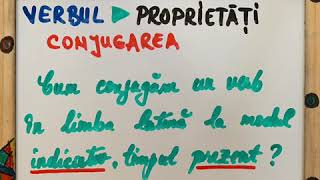 VERBUL ▶ PROPRIETĂȚI
CONJUGAREA
Cum conjugăm un verb
în limba latină la modul
indicativ, timpul prezent?